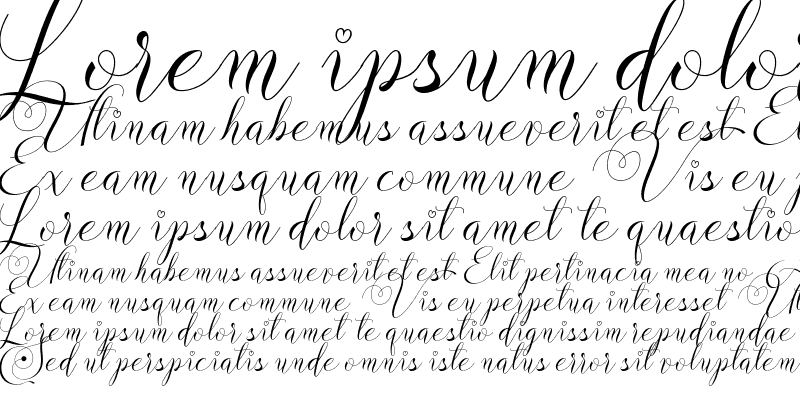 Lorem ipsum dolor
Utinam habemus assueverit et est El
Ex eam nusquam commune Vis eu p
Lorem ipsum dolor sit amet te quaestio
Utinam habemus assueverit et est Elit pertinacia mea no
Ex eam nusquam commune Vis eu perpetua interesset Ut
Lorem ipsum dolor sit amet te quaestio dignissim repudiandae
Sed ut perspiciatis unde omnis iste natus error sit voluptatem